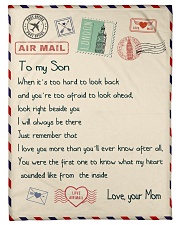 AIR MAIL
To my Son
When it's too hard to look back
and you're too afraid to look ahead,
look right beside you
I will always be there
Just remember that
I love you more than you'll ever know after all,
You were the first one to know what my heart
sounded like from the inside
Love, your Mom